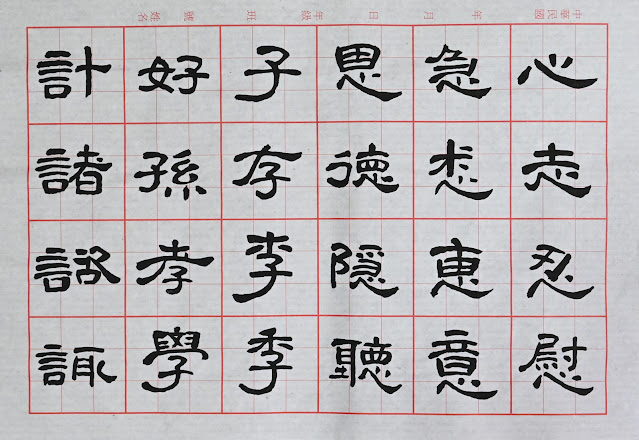 中華民國 年 月 日 年級 班 號 姓名
心志忍慰
急恵意
思德隱聽
子存李季
好孫孝學
計諸